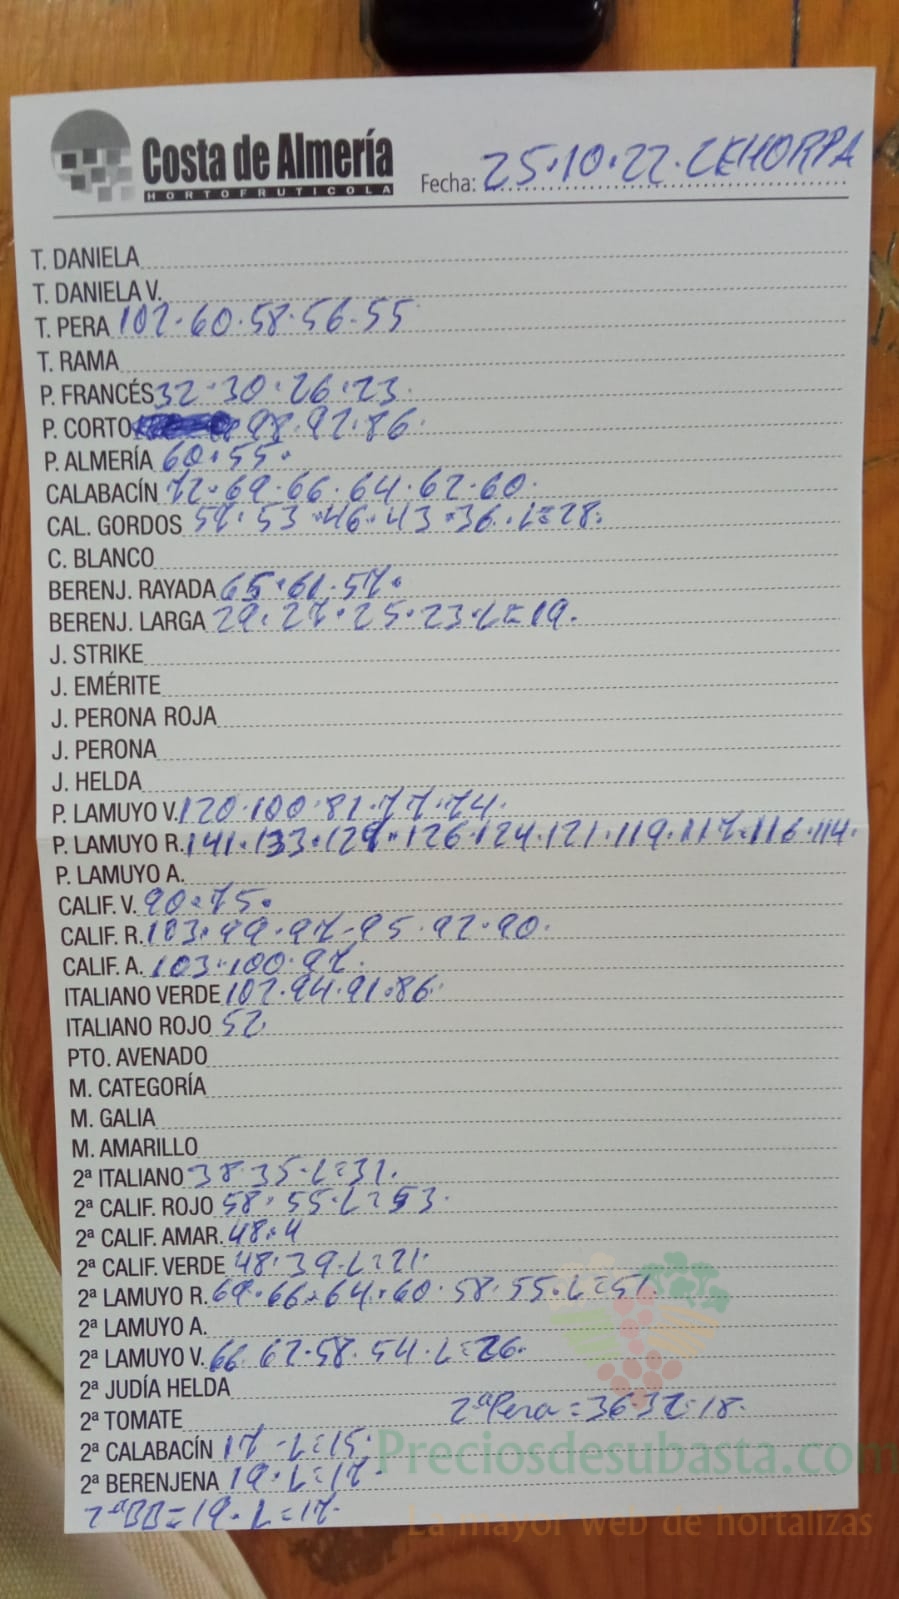 Costa de Almería
HORTOFRUTICOLA
Fecha: 25.10.22. CEHORPA
T. DANIELA
T. DANIELA V.
T. PERA 102.60.58.56.55
T. RAMA
P. FRANCÉS 32.30.26.23.
P. CORTO 98.92.86.
P. ALMERÍA 60.55.
CALABACÍN 72.69.66.64.62.60.
CAL. GORDOS 57.53.46.43.36.L=28.
C. BLANCO
BERENJ. RAYADA 65.61.57.
BERENJ. LARGA 29.27.25.23.L=19.
J. STRIKE
J. EMÉRITE
J. PERONA ROJA
J. PERONA
J. HELDA
P. LAMUYO V. 120.100.81.77.74.
P. LAMUYO R. 141.133.129.126.124.121.119.117.116.114.
P. LAMUYO A.
CALIF. V. 90.75.
CALIF. R. 103.99.97.95.92.90.
CALIF. A. 103.100.97.
ITALIANO VERDE 102.94.91.86.
ITALIANO ROJO 52.
PTO. AVENADO
M. CATEGORÍA
M. GALIA
M. AMARILLO
2ª ITALIANO 38.35.L=31.
2ª CALIF. ROJO 58.55.L=53.
2ª CALIF. AMAR. 48.4
2ª CALIF. VERDE 48.39.L=21.
2ª LAMUYO R. 69.66.64.60.58.55.L=51.
2ª LAMUYO A.
2ª LAMUYO V. 66.62.58.54.L=26.
2ª JUDÍA HELDA
2ª TOMATE 2ªPera=36.32.18.
2ª CALABACÍN 17.L=15.
Preciosdesubasta.com
2ª BERENJENA 19.L=17.
2ªBB=19.L=17.
La mayor web de hortalizas